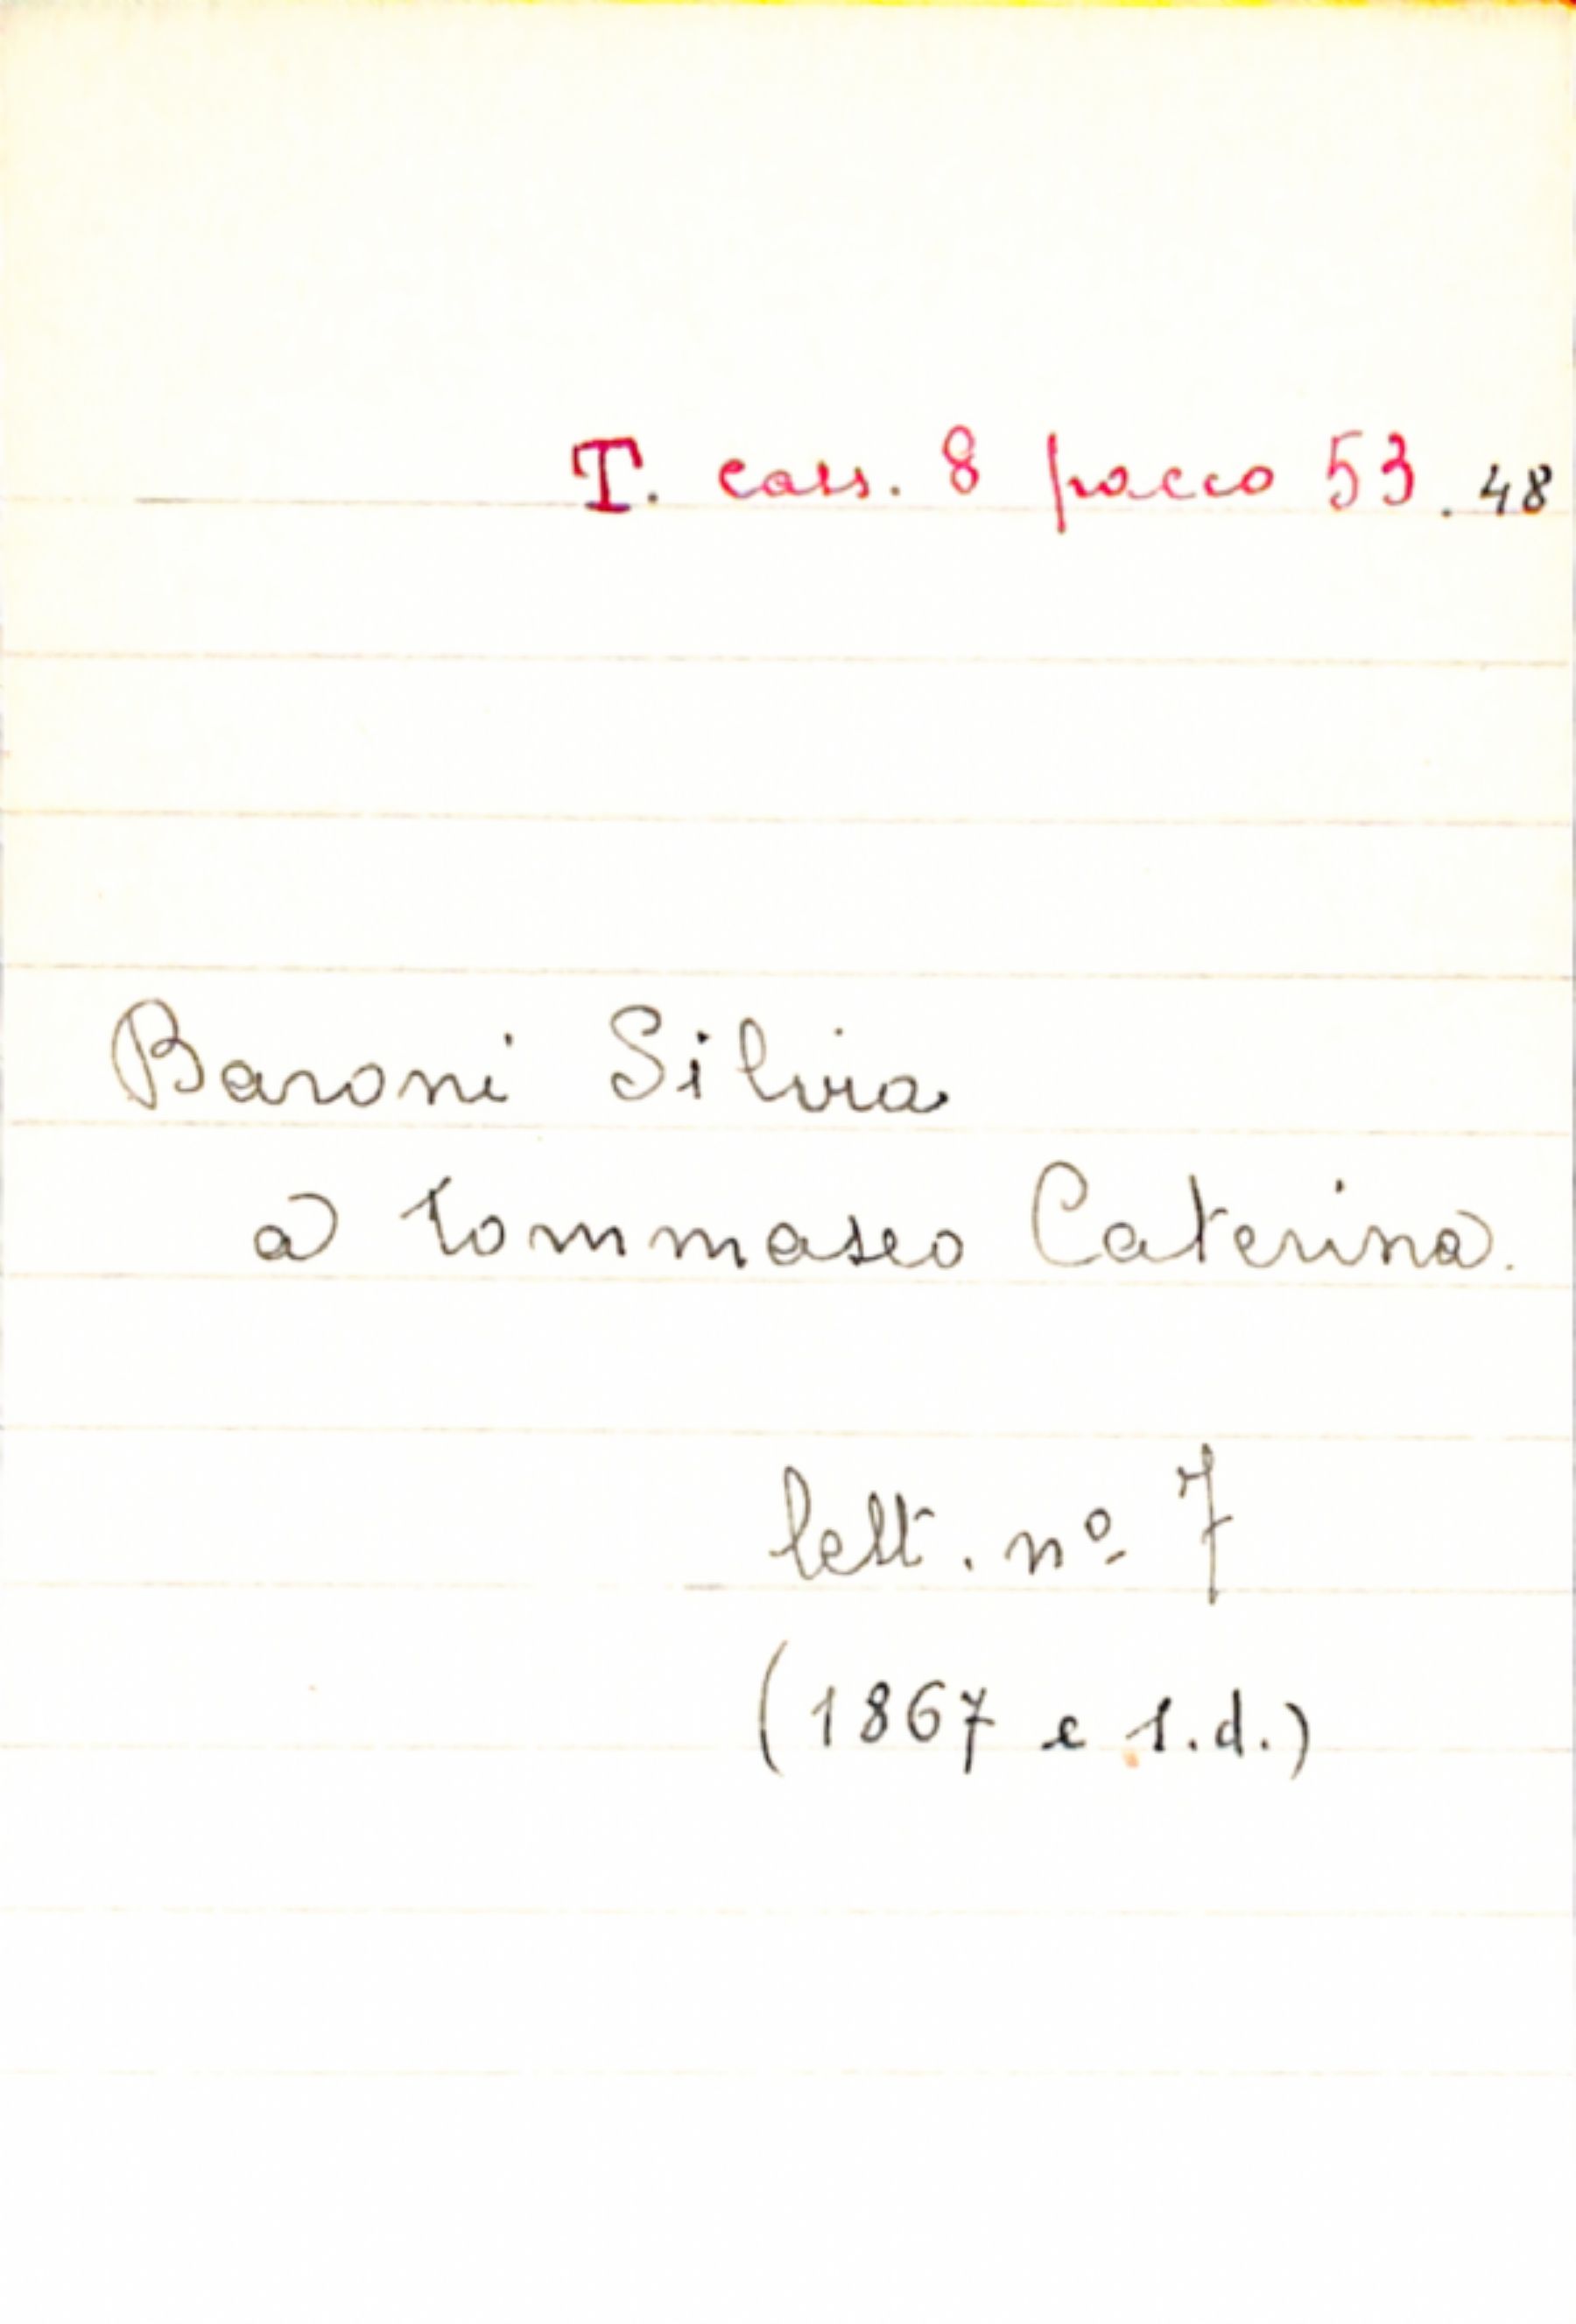 T. cass. 8 pacco 53. 48
Baroni Silvia
a Tommaseo Caterina.
lett. nº 7
(1867 e s.d.)